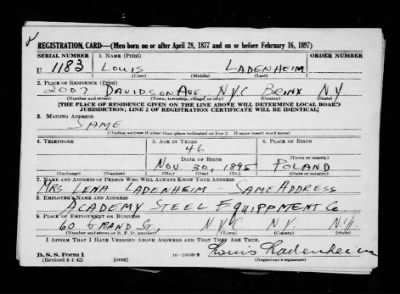 REGISTRATION CARD—(Men born on or after April 28, 1877 and on or before February 16, 1897)
SERIAL NUMBER 1. NAME (Print) ORDER NUMBER
U 1183 LOUIS LADENHEIM
(First) (Middle) (Last)
2. PLACE OF RESIDENCE (Print)
2007 DAVIDSON AVE NYC BRONX NY
(Number and street) (Town, township, village, or city) (County) (State)
[THE PLACE OF RESIDENCE GIVEN ON THE LINE ABOVE WILL DETERMINE LOCAL BOARD
JURISDICTION; LINE 2 OF REGISTRATION CERTIFICATE WILL BE IDENTICAL]
3. MAILING ADDRESS
SAME
[Mailing address if other than place indicated on line 2. If same insert word same]
4. TELEPHONE 5. AGE IN YEARS 6. PLACE OF BIRTH
46
DATE OF BIRTH (Town or county)
NOV 30, 1895 POLAND
(Exchange) (Number) (Mo.) (Day) (Yr.) (State or country)
7. NAME AND ADDRESS OF PERSON WHO WILL ALWAYS KNOW YOUR ADDRESS
MRS LENA LADENHEIM SAME ADDRESS
8. EMPLOYER'S NAME AND ADDRESS
ACADEMY STEEL EQUIPPMENT Co
9. PLACE OF EMPLOYMENT OR BUSINESS
60 GRAND St, NYC N.Y. N.Y.
(Number and street or R. F. D. number) (Town) (County) (State)
I AFFIRM THAT I HAVE VERIFIED ABOVE ANSWERS AND THAT THEY ARE TRUE.
D. S. S. Form 1
(Revised 4-1-42) Louis Ladenheim
(Registrant's signature)